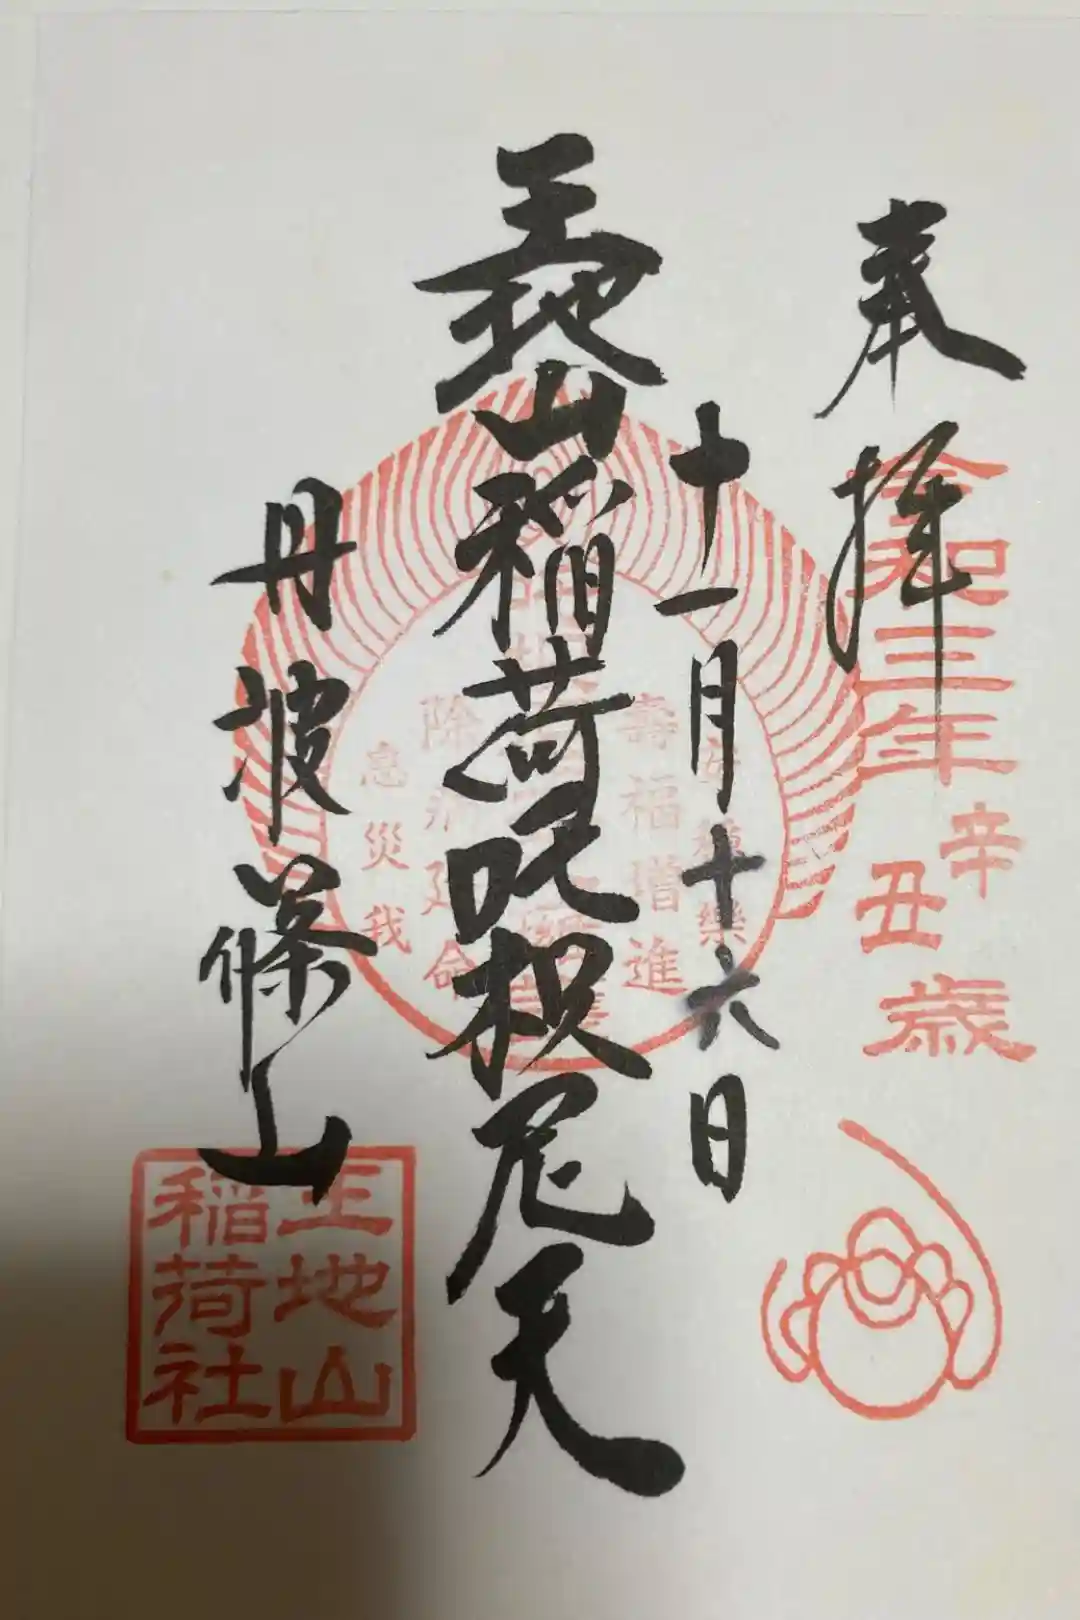 奉拝
令和三年
辛
丑
歳
十一月十六日
王地山稲荷吒枳尼天
壽福増進
除病延命
息災我
丹波篠山
王地山
稲荷社